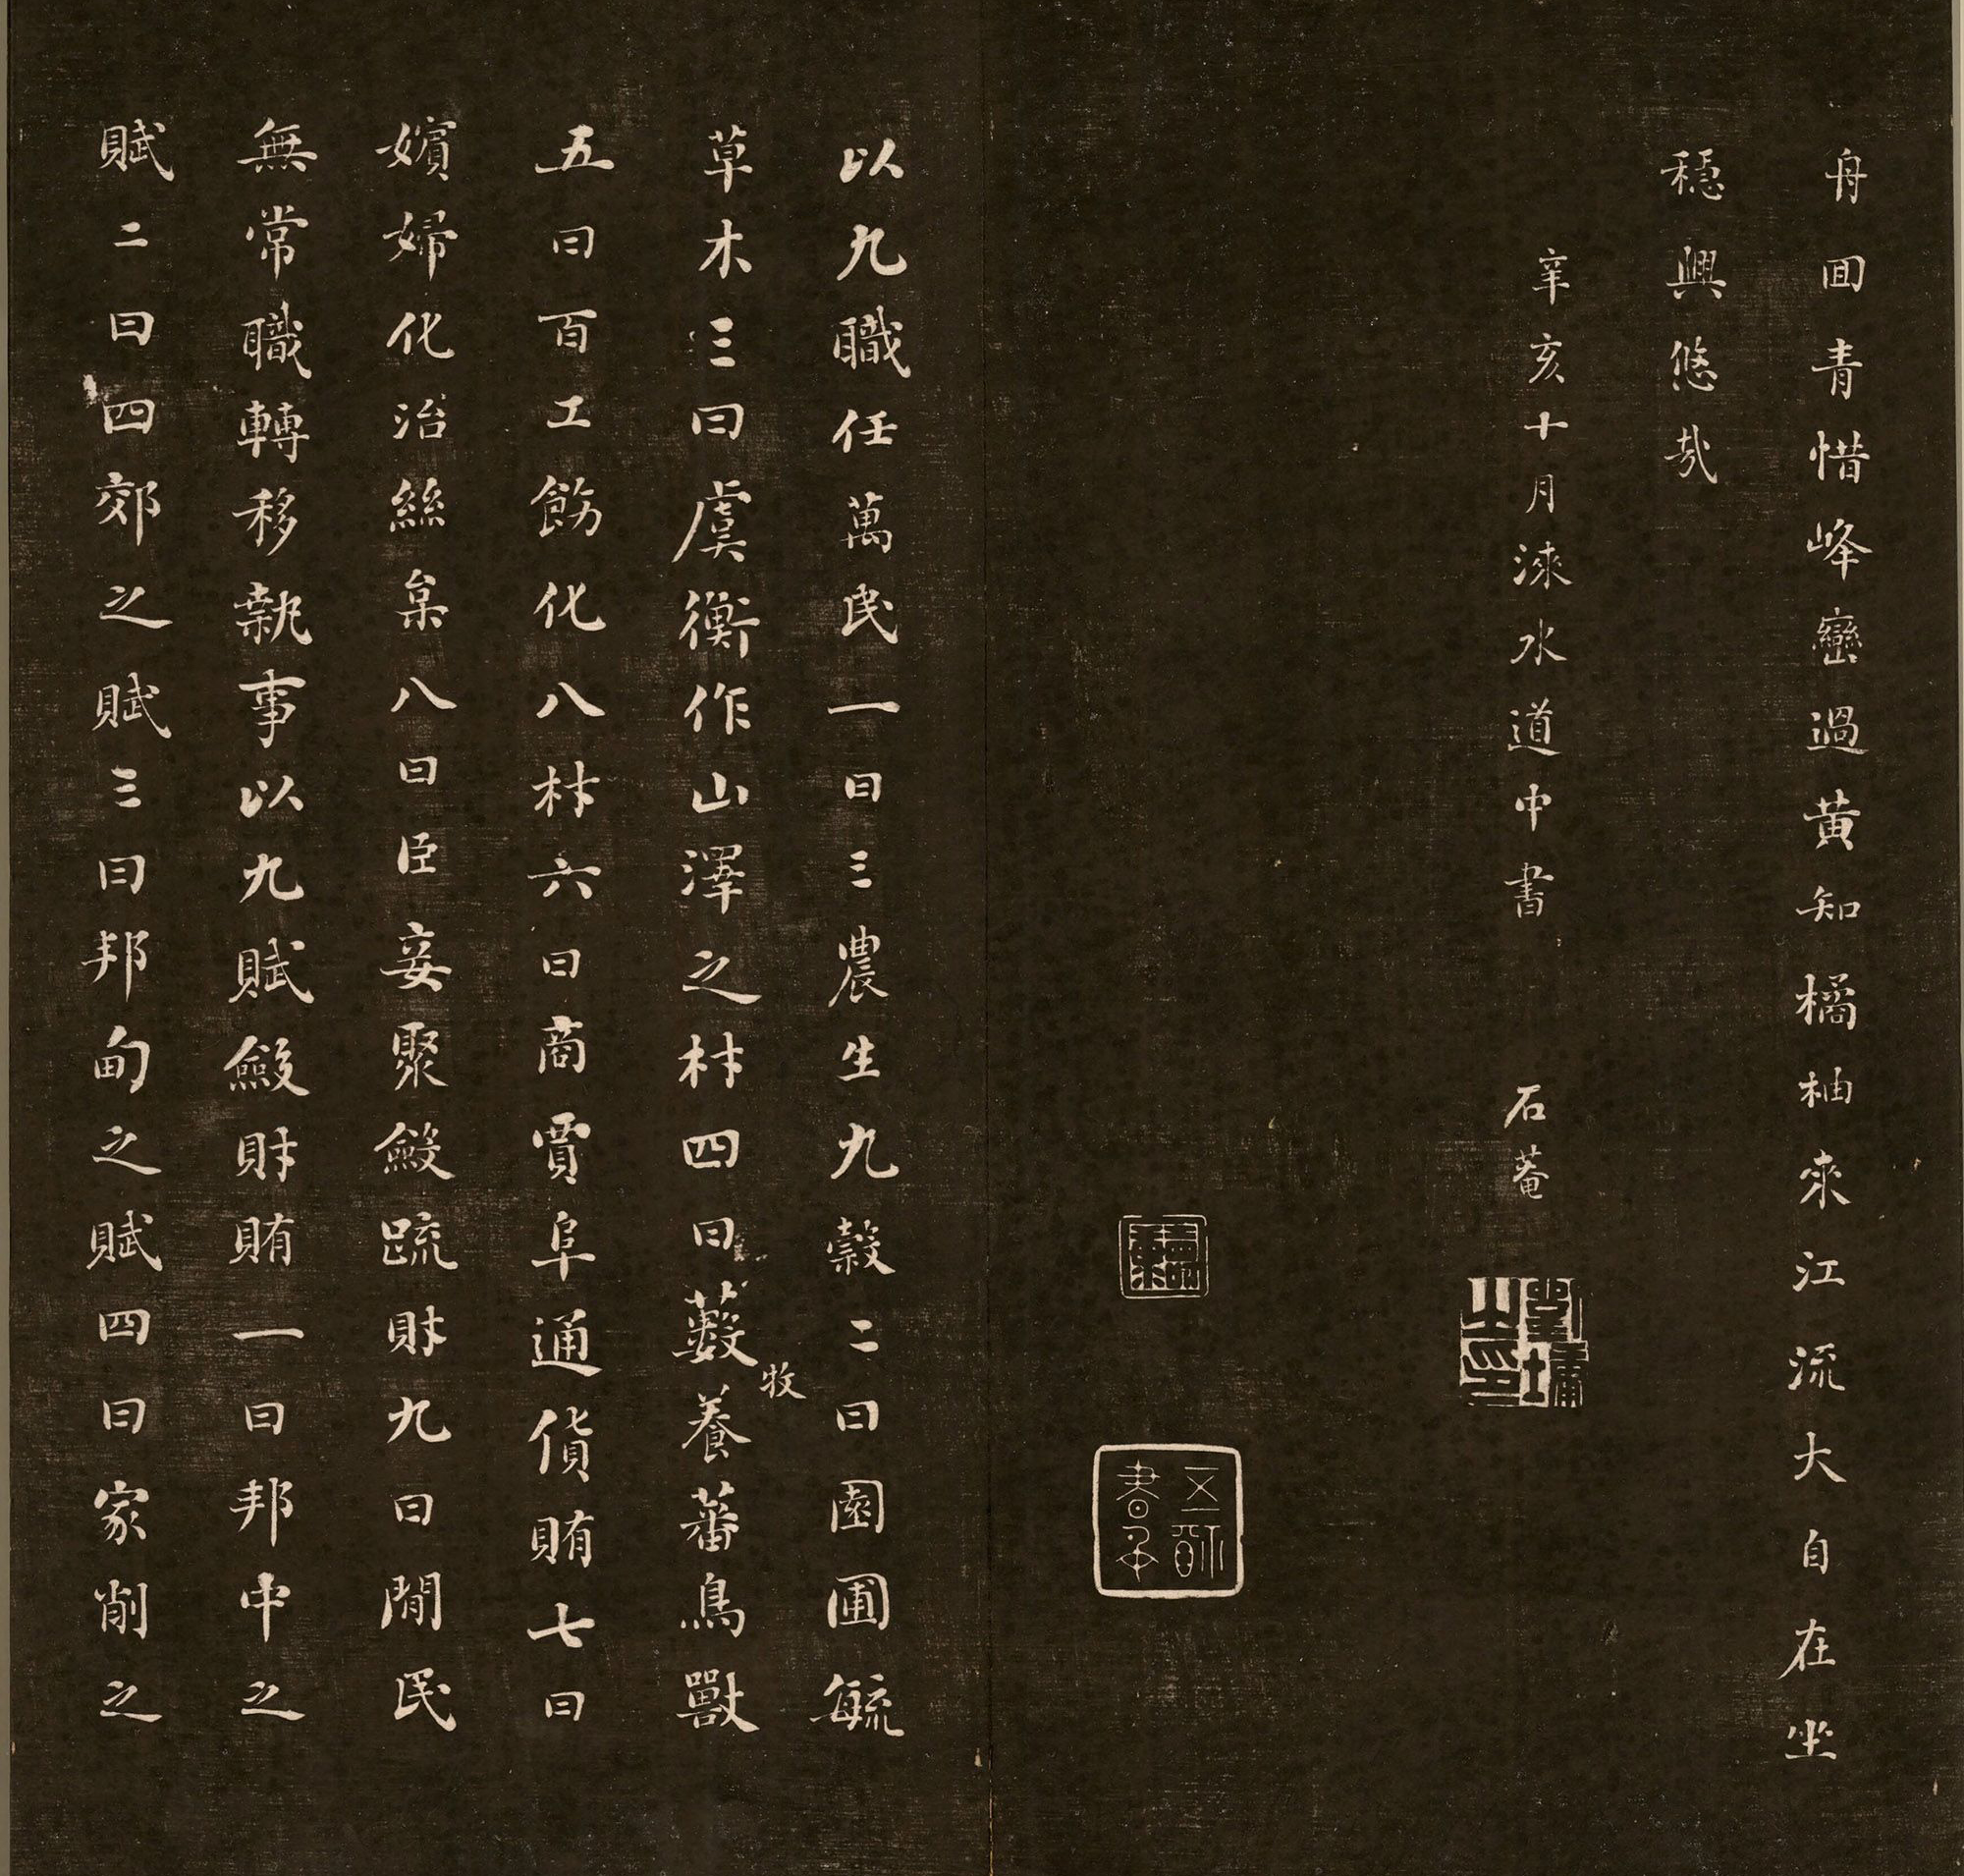 舟囬青惜峰巒過黃知橘柚來江流大自在坐
穩興悠哉
辛亥十月涑水道中書 石菴
劉墉之印
以九職任萬民一曰三農生九穀二曰園圃毓
草木三曰虞衡作山澤之材四曰藪牧養蕃鳥獸
五曰百工飭化八材六曰商賈阜通貨賄七曰
嬪婦化治絲枲八曰臣妾聚斂疏財九曰閒民
無常職轉移執事以九賦斂財賄一曰邦中之
賦二曰四郊之賦三曰邦甸之賦四曰家削之